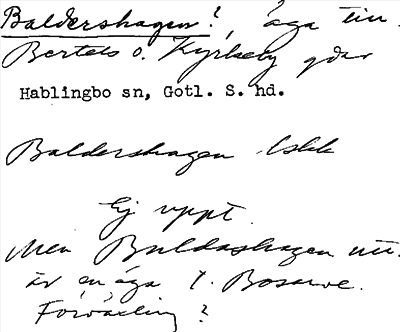 Baldershagen?, äga till
Bertels o. Kyrkeby gdar
Hablingbo sn, Gotl. S. hd.
Baldershagen Iskk
Ej uppt.
Men Buldashagen
är en äga t. Bosarve.
Förväxling?